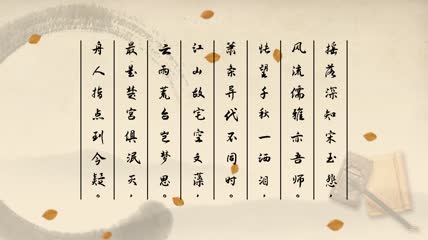 摇落深知宋玉悲，
风流儒雅亦吾师。
怅望千秋一洒泪，
萧条异代不同时。
江山故宅空文藻，
云雨荒台岂梦思。
最是楚宫俱泯灭，
舟人指点到今疑。